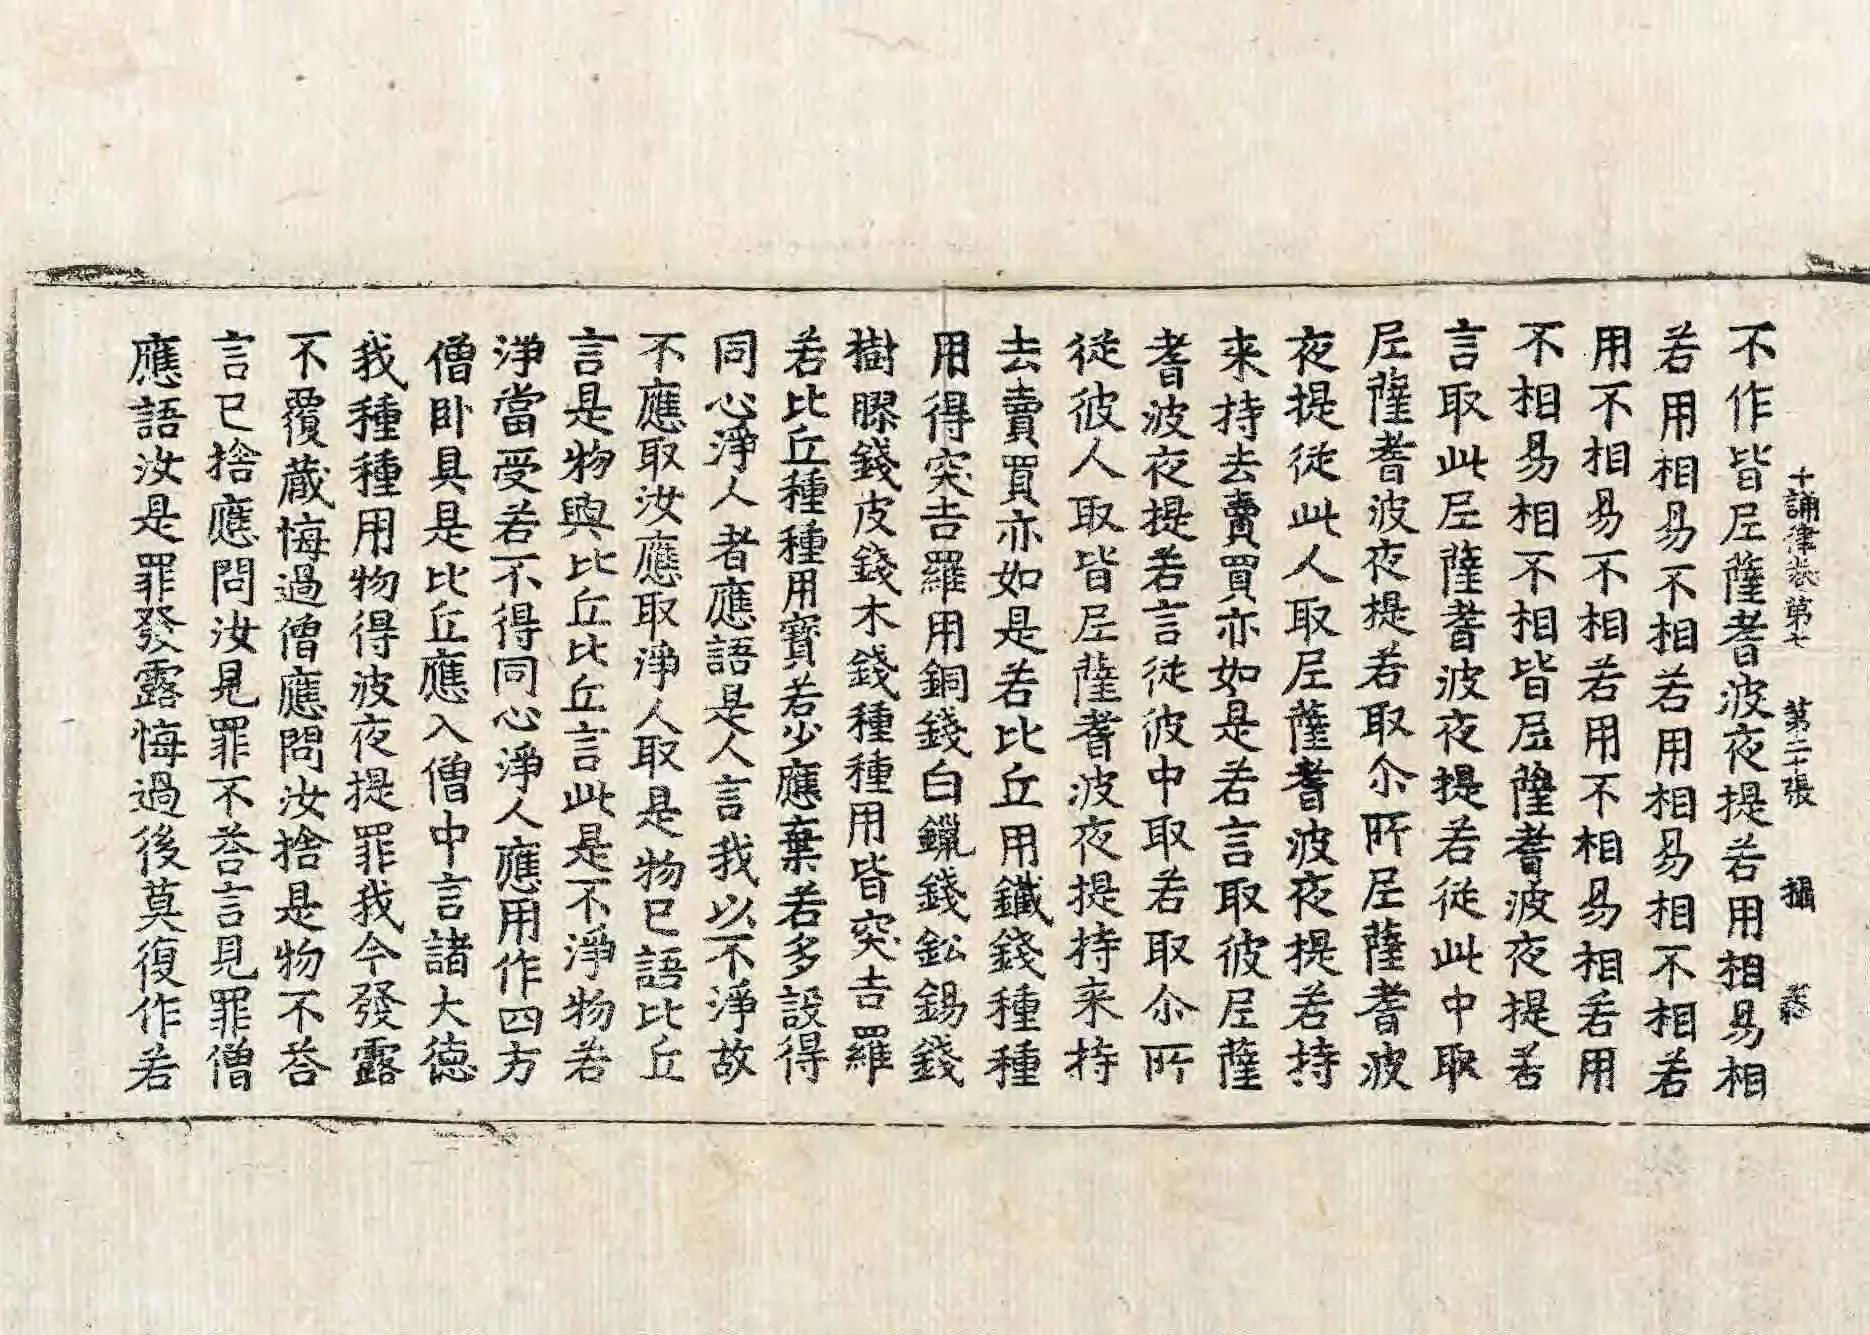 十誦律卷第七 第二十張 攝
不作皆尼薩耆波夜提若用相易相
若用相易不相若用相易相不相若
用不相易不相若用不相易相若用
不相易相不相皆尼薩耆波夜提若
言取此尼薩耆波夜提若從此中取
尼薩耆波夜提若取尒所尼薩耆波
夜提從此人取尼薩耆波夜提若持
来持去賣買亦如是若言取彼尼薩
耆波夜提若言從彼中取若取尒所
從彼人取皆尼薩耆波夜提持来持
去賣買亦如是若比丘用鐵錢種種
用得突吉羅用銅錢白鑞錢鈆錫錢
樹膠錢皮錢木錢種種用皆突吉羅
若比丘種種用寶若少應棄若多設得
同心淨人者應語是人言我以不淨故
不應取汝應取淨人取是物已語比丘
言是物與比丘比丘言此是不淨物若
淨當受若不得同心淨人應用作四方
僧卧具是比丘應入僧中言諸大德
我種種用物得波夜提罪我今發露
不覆藏悔過僧應問汝捨是物不荅
言已捨應問汝見罪不荅言見罪僧
應語汝是罪發露悔過後莫復作若